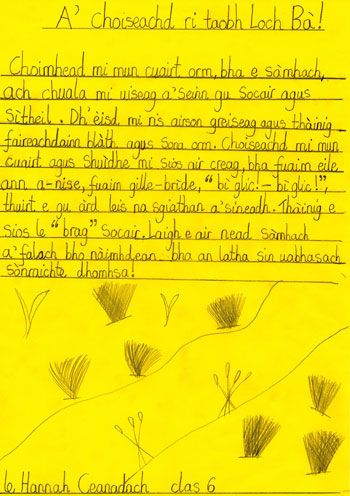 A' choiseachd ri taobh Loch Bà!
Choimhead mi mun cuairt orm, bha e sàmhach,
ach chuala mi uiseag a'seinn gu socair agus
sìtheil. Dh'èisd mi n's airson greiseag agus thàinig
faireachdainn blàth agus sona orm. Choiseachd mi mun
cuairt agus shuidhe mi sìos air creag, bha fuaim eile
ann a-nise, fuaim gille-brìde, "bì glic!-bì glic!",
thuirt e gu àrd leis na sgiathan a'sìneadh. Thàinig e
sìos le "brag" socair. Laigh e air nead sàmhach
a'falach bho nàimhdean bha an latha sin uabhasach
sònraichte dhomhsa!
le Hannah Ceanadach clas 6